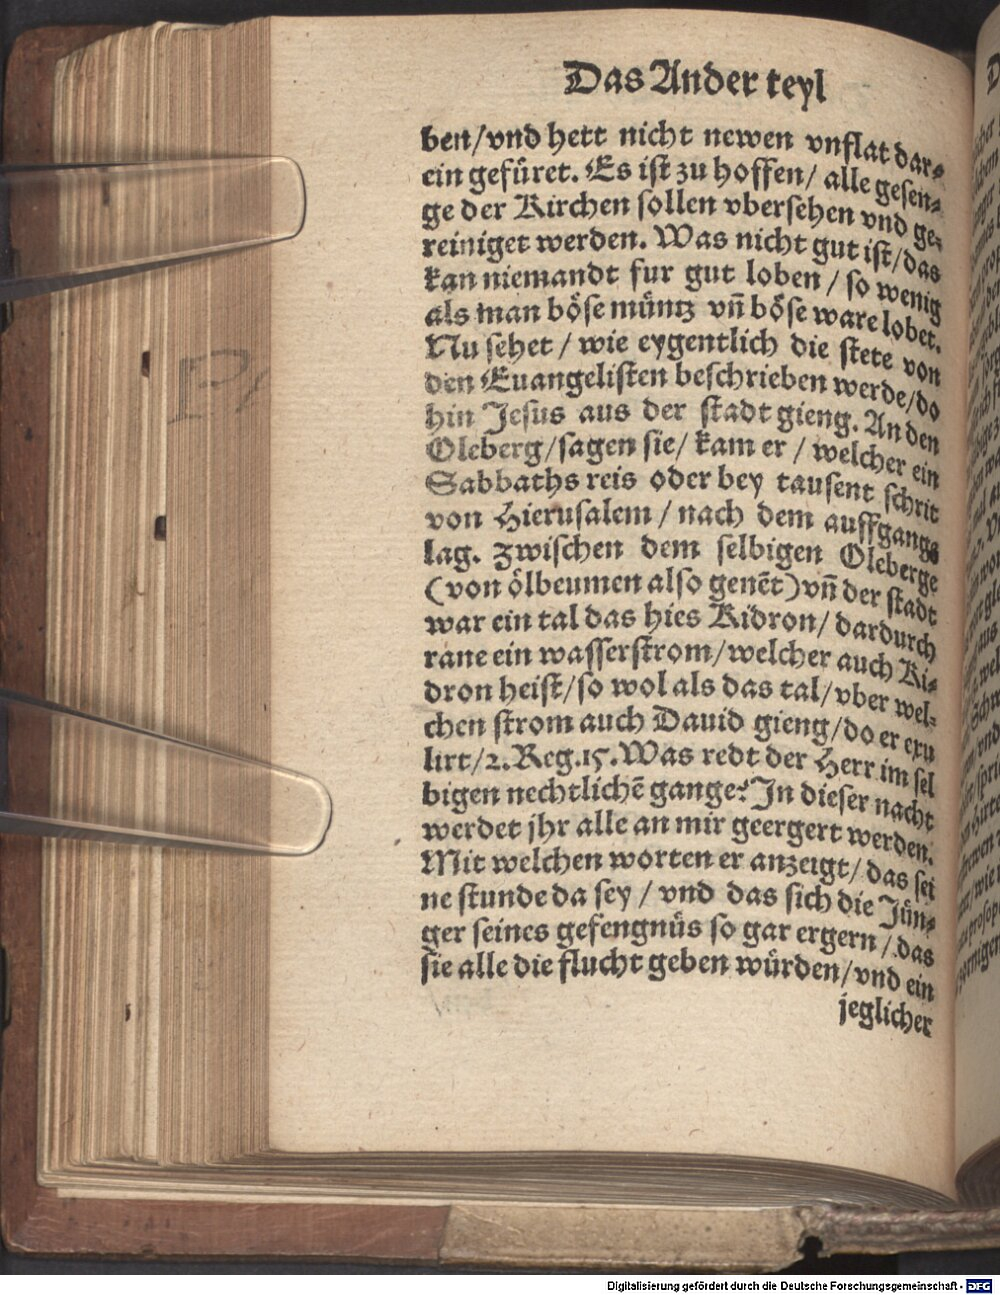 Das Ander teyl
ben/vnd hett nicht newen vnflat dar⸗
ein gefüret. Es ist zu hoffen/ alle gesen⸗
ge der Kirchen sollen vbersehen vnd ge⸗
reiniget werden. Was nicht gut ist/das
kan niemandt fur gut loben / so wenig
als man böse müntz vñ böse ware lobet.
Nu sehet / wie eygentlich die stete von
den Euangelisten beschrieben werde/do
hin Jesus aus der stadt gieng. An den
Oleberg/sagen sie/ kam er / welcher ein
Sabbaths reis oder bey tausent schrit
von Hierusalem / nach dem auffgangs
lag. Zwischen dem selbigen Oleberge
(von ölbeumen also genēt) vñ der stadt
war ein tal das hies Kidron/ dardurch
rane ein wasserstrom/welcher auch Ki⸗
dron heist/so wol als das tal/vber wel⸗
chen strom auch Dauid gieng/do er exu
lirt/2.Reg.15.Was redt der Herr im sel
bigen nechtlichē gange? In dieser nacht
werdet jhr alle an mir geergert werden.
Mit welchen worten er anzeigt/ das sei
ne stunde da sey / vnd das sich die Jün⸗
ger seines gefengnüs so gar ergern /das
sie alle die flucht geben würden/vnd ein
jeglicher
Digitalisierung gefördert durch die Deutsche Forschungsgemeinschaft - DFG